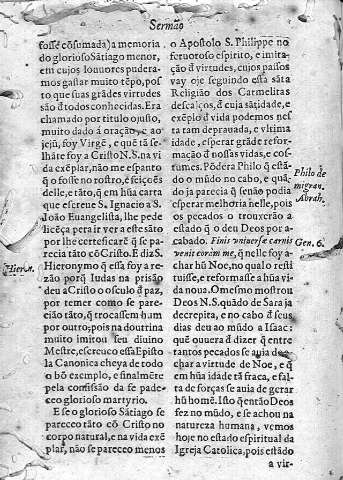 Sermão
fosse cõsumada) a memoria
do glorioso Sãtiago menor,
em cujos louuores pudera-
mos gastar muito tẽpo, pos
to que suas grãdes virtudes
são đ todos conhecidas. Era
chamado por titulo ojusto,
muito dado á oração, e ao
jejũ, foy Virgẽ, e que tã se-
lhãte foy a Cristo N.S. na vi
da exẽplar, não me espanto
q̃ o fosse no rostro, é feiçoẽs
delle, e tãto, q̃ em hũa carta
que escreue S. Ignacio a S.
João Euangelista, lhe pede
licẽça pera ir ver a este sãto
por lhe certificarẽ q̃ se pa-
recia tãto cõ Cristo. E diz S.
Hieronymo q̃ essa foy a re-
zão porq̃ Iudas na prisão
deu a Cristo o osculo đ paz,
por temer como se pare-
cião tãto, q̃ trocassem hum
por outro; pois na doutrina
muito imitou seu diuino
Mestre, escreuco essa Episto
la Canonica cheya de todo
o bõ exemplo, e finalmẽte
pela confissão da fe pade-
ceo glorioso martyrio.
E se o glorioso Sãtiago se
pareceo tãto cõ Cristo no
corpo natural, e na vida exẽ
plar, não se pareceo menos
Hieron.
o Apostolo S. Philippe no
feruoroso espirito, e imita-
ção đ virtudes, cujos passos
vay oje seguindo esta sãta
Religião dos Carmelitas
descalços, đ cuja sãtidade, e
exẽplo đ vida podemos nes
ta tam deprauada, e vltima
idade, esperar grãde refor-
mação đ nossas vidas, e cos-
tumes. Põdera Philo q̃ estã-
do o mũdo no cabo, e quã-
do ja parecia q̃ senão podia
esperar melhoria nelle, pois
os pecados o trouxerão a
estado q̃ o deu Deos por a-
cabado. Finis vniuersæ carnis
venit coram me, q̃ nelle foy a-
char hũ Noe, no qual resti
tuisse, e reformasse a hũa vi
da noua. O mesmo mostrou
Deos N.S. quãdo de Sara ja
decrepita, e no cabo đ seus
dias deu ao mũdo a Isaac:
quẽ ouuera đ dizer q̃ entre
tantos pecados se auia de a-
char a virtude de Noe, e q̃
em hũa idade tã fraca, e fal-
ta de forças se auia de gerar
hũ homẽ. Isto q̃ entáo Deos
fez no mũdo, e se achou na
natureza humana, vemos
hoje no estado espiritual da
Igreja Catolica, pois estãdo
a vir-
Philo de
migran.
Abrah.
Gen. 6.